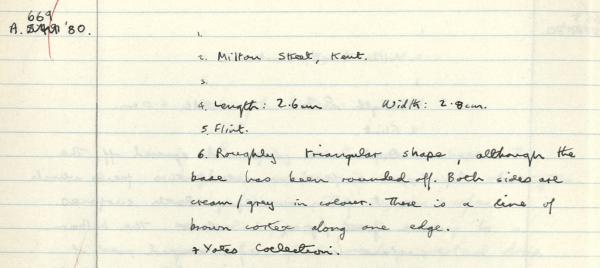 669
A. '80.
1.
2. Milton Street, Kent.
3.
4. Length: 2.6cm Width: 2.8cm.
5. Flint.
6. Roughly triangular shape, although the
base has been rounded off. Both sides are
cream/grey in colour. There is a line of
brown cortex along one edge.
7 Yates Collection.